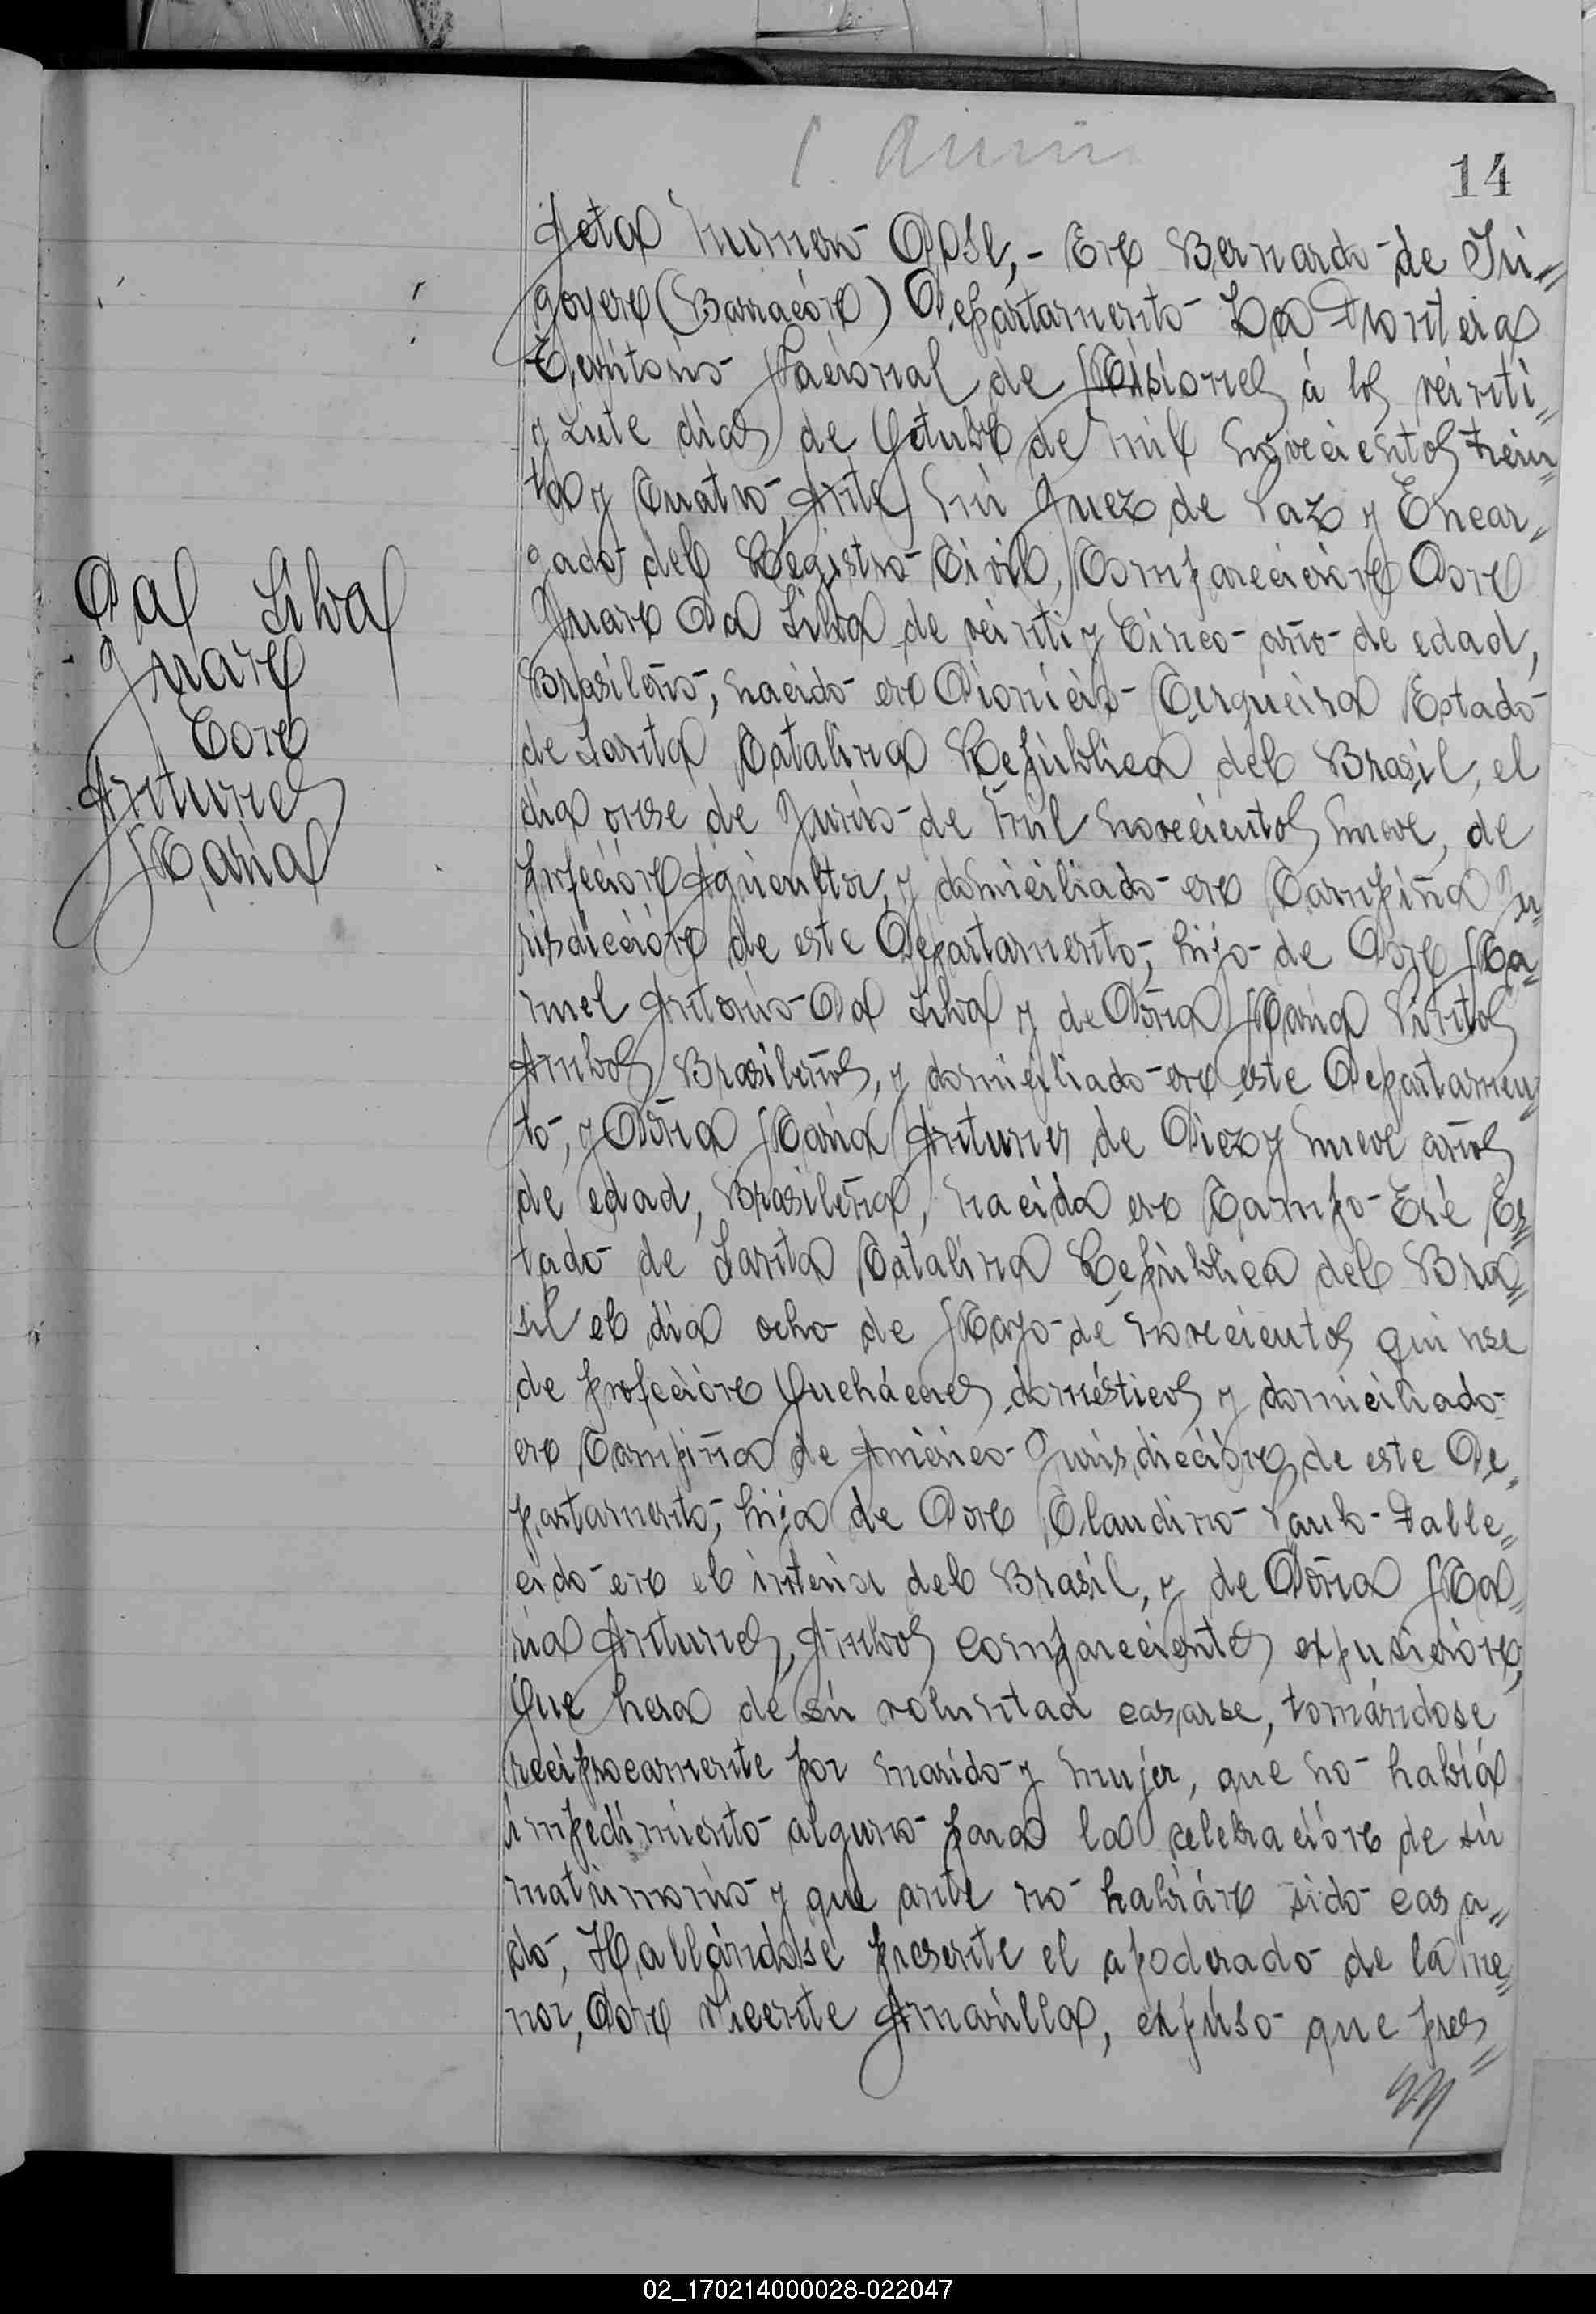 14
Acta Numero Dose,- En Bernardo de Iri=
goyen (Barracón) Departamento La Frontera
Territorio Nacional de Misiones á los veinti=
y siete dias de Octubre de mil novecientos trein=
ta y Cuatro, Ante mí Juez de Paz y Encar=
gado del Registro Civil, Comparecieron Don
Juan Da Silva de veinti y Cinco año de edad,
Brasileño, nacido en Dionicio Cerqueira Estado
de Santa Catalina República del Brasil, el
dia onse de Junio de mil novecientos nueve, de
profeción Agricultor, y domiciliado en Campiña Ju=
risdicción de este Departamento, hijo de Don Ma=
nuel Antonio Da Silva y de Doña Maria Pintos
Ambos Brasileños, y domiciliado en este Departamen=
to, y Doña Maria Antunes de Diez y nueve años
de edad, Brasileña, nacida en Campo Eré Es=
tado de Santa Catalina República del Bra=
sil el dia ocho de Mayo de novecientos quinse
de profeción Quehaceres domésticos y domiciliado
en Campiña de Américo Jurisdicción de este De=
partamento, hija de Don Claudino Paulo Falle=
cido en el interior del Brasil, y de Doña Ma=
ria Antunes, Ambos comparecientes expusieron,
Que hera de sú voluntad casarse, tomándose
reciprocamente por marido y mujer, que no habiá
impedimiento alguno para la celebración de sú
matrimonio y que ante no habián sido casa=
do, Hallándose presente el apoderado de la me=
nor, Don Vicente Amarilla, expúso que pres=
Da Silva
Juan
Con
Antunes
Maria
02_170214000028-022047